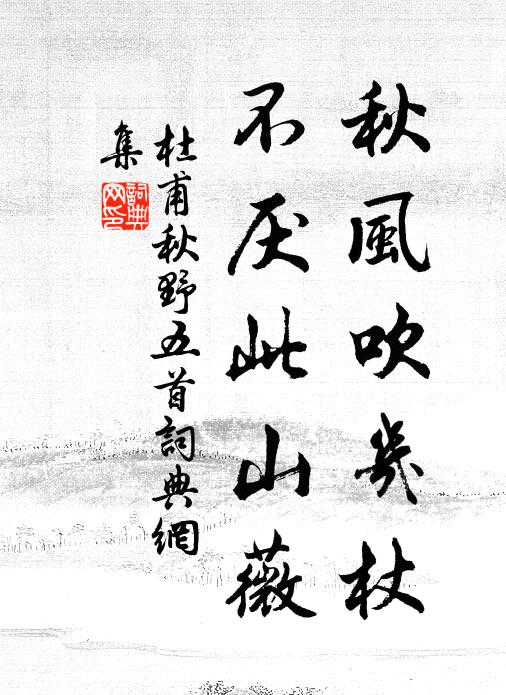 秋風吹幾杖
不厌此山薇
杜甫秋野五首詞典網
集
詞典网印